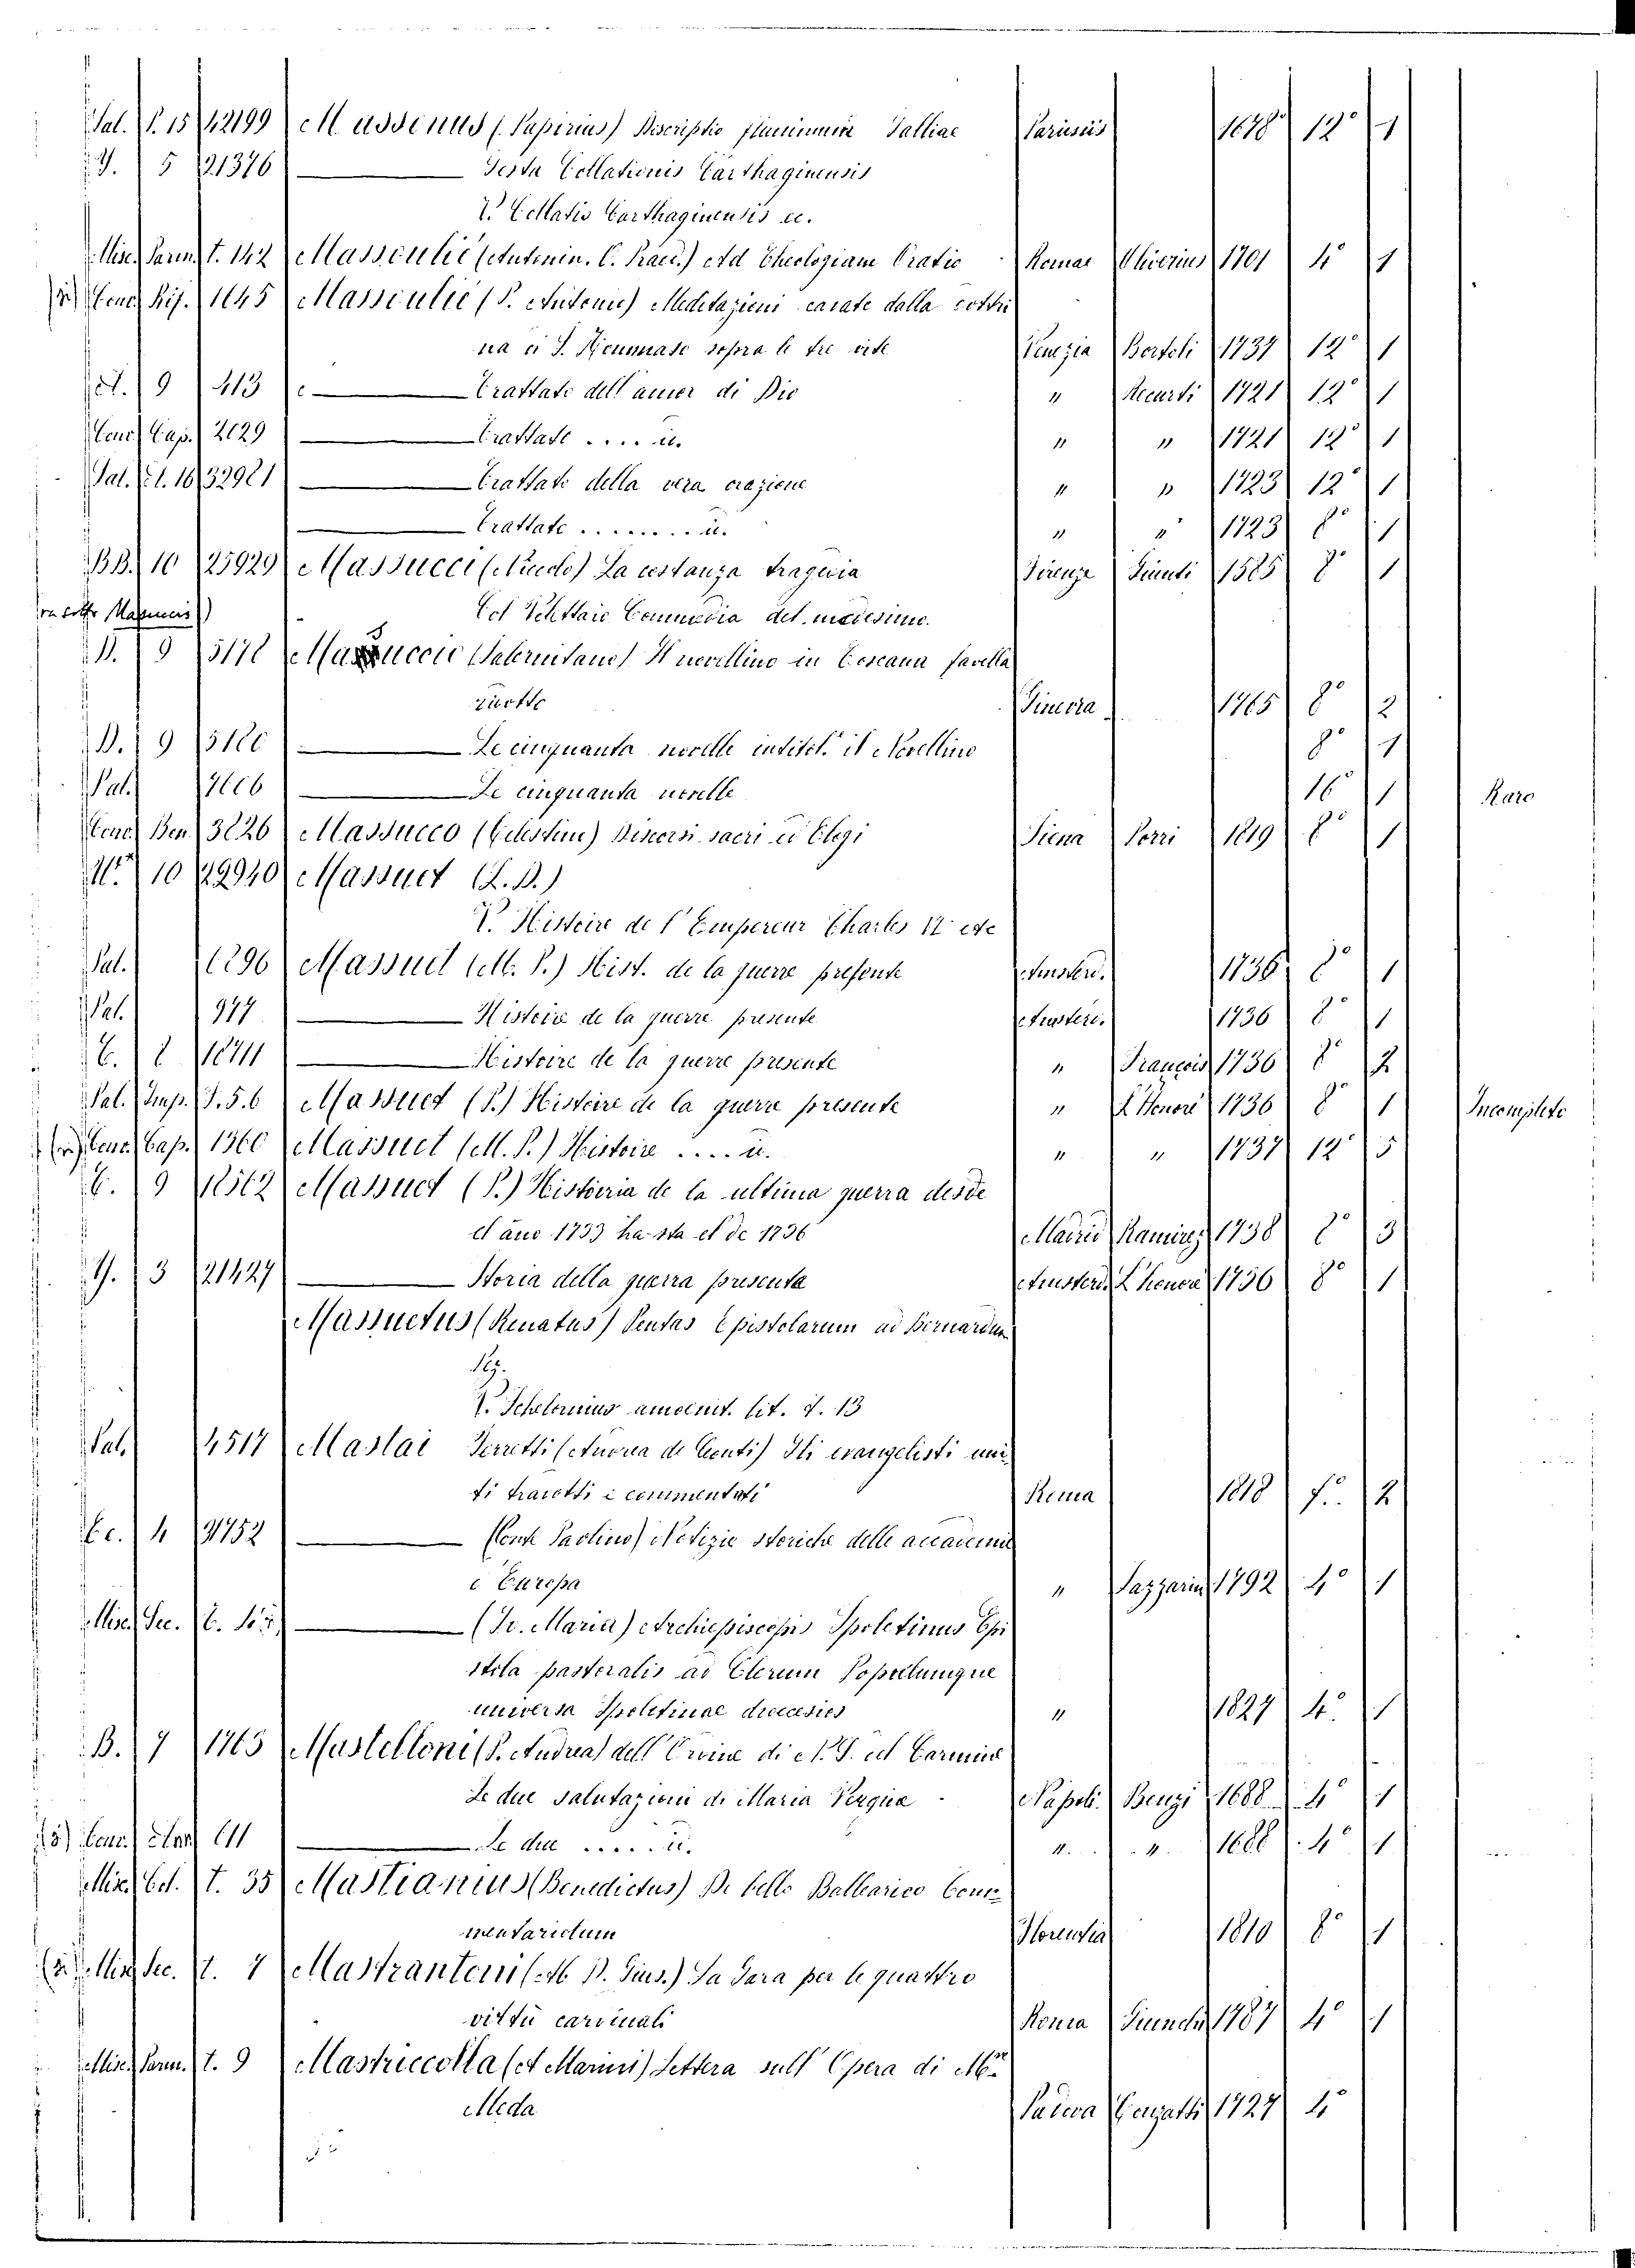 Pal. P. 15 42199 Massonus (Papirius) Descriptio fluminum Galliae Parisiis 1678 12° 1
Y. 5 21376 Gesta Collationis Carthaginensis
V. Collatio Carthaginensis ec.
Misc. Parm. t. 142 Massoulié (Antonin. O. Praed.) Ad Theologiam Oratio Romae Chierius 1701 4° 1
Conc. Rif. 1645 Massoulié (P. Antonio) Meditazioni cavate dalla dottri
na di S. Tommaso sopra le tre vite Venezia Bortoli 1737 12° 1
A. 9 413 Trattato dell'amor di Dio " Recurti 1721 12° 1
Conc. Cap. 2029 Trattato .... id. " " 1721 12° 1
Pal. 16 32981 Trattato della vera orazione " " 1723 12° 1
Trattato ........ id. " " 1723 8° 1
BB. 10 25929 Massucci (Nicolo) La costanza tragedia Firenze Giunti 1585 8° 1
Commedia del medesimo.
D. 9 5178 Massuccio Salernitano Il novellino in toscana favella
ridotto Ginevra 1765 8° 2
D. 9 5180 Le cinquanta novelle intitol. il Novellino 8° 1
Pal. 7006 Le cinquanta novelle 16° 1 Raro
Conc. Ben. 3826 Massucco (Celestino) Discorsi sacri ed Elogi Siena Porri 1819 8° 1
10 29940 Massuet (L. D.)
V. Histoire de l'Empereur Charles VI etc
Pal. 6296 Massuet (M. P.) Hist. de la guerre presente Amsterd. 1736 8° 1
Pal. 977 Histoire de la guerre presente Amsterd. 1736 8° 1
C. 8 18711 Histoire de la guerre presente " François 1736 8° 2
Pal. Imp. P. 5. 6 Massuet (P.) Histoire de la guerre presente " L'Honoré 1736 8° 1 Incompleto
Conc. Cap. 1360 Massuet (M. P.) Histoire .... id. " " 1737 12° 5
C. 9 18562 Massuet (P.) Historia de la ultima guerra desde
el ano 1733 hasta el de 1736 Madrid Ramirez 1738 8° 3
Y. 3 21427 Storia della guerra presente Amsterd. L'honoré 1736 8° 1
Massuetus (Renatus) Pentas Epistolarum ad Bernardum
Pez.
V. Schelornius amoenit. lit. t. 13
Pal. 4517 Mastai Ferretti (Andrea de Conti) Gli evangelisti uni
ti tradotti e commentati Roma 1818 f. 2
Cc. 4 9752 (Conte Paolino) Notizie storiche delle accademie
d'Europa " Lazzarini 1792 4° 1
Misc. Sec. (Jo. Maria) Archiepiscopis Spoletinus Epi
stola pastoralis ad Clerum Populumque
universa Spoletinae dioecesies " 1827 4° 1
B. 7 1763 Mastelloni (P. Andrea) dell'Ordine di N. S. del Carmine
Le due salutazioni di Maria Vergine Napoli Benzi 1688 4° 1
Conc. 611 Le due ..... id. " " 1688 4° 1
Misc. Col. t. 35 Mastianius (Benedictus) De bello Ballearico Com-
mentariolum Florentia 1810 8° 1
Misc. Sec. t. 7 Mastrantoni (M. D. Gius.) La Gara per le quattro
virtù cardinali Roma Giunchi 1787 4° 1
Misc. Parm. t. 9 Mastriccolla (A Marini) Lettera sull'Opera di Mr
Meda Padova Conzatti 1727 4°